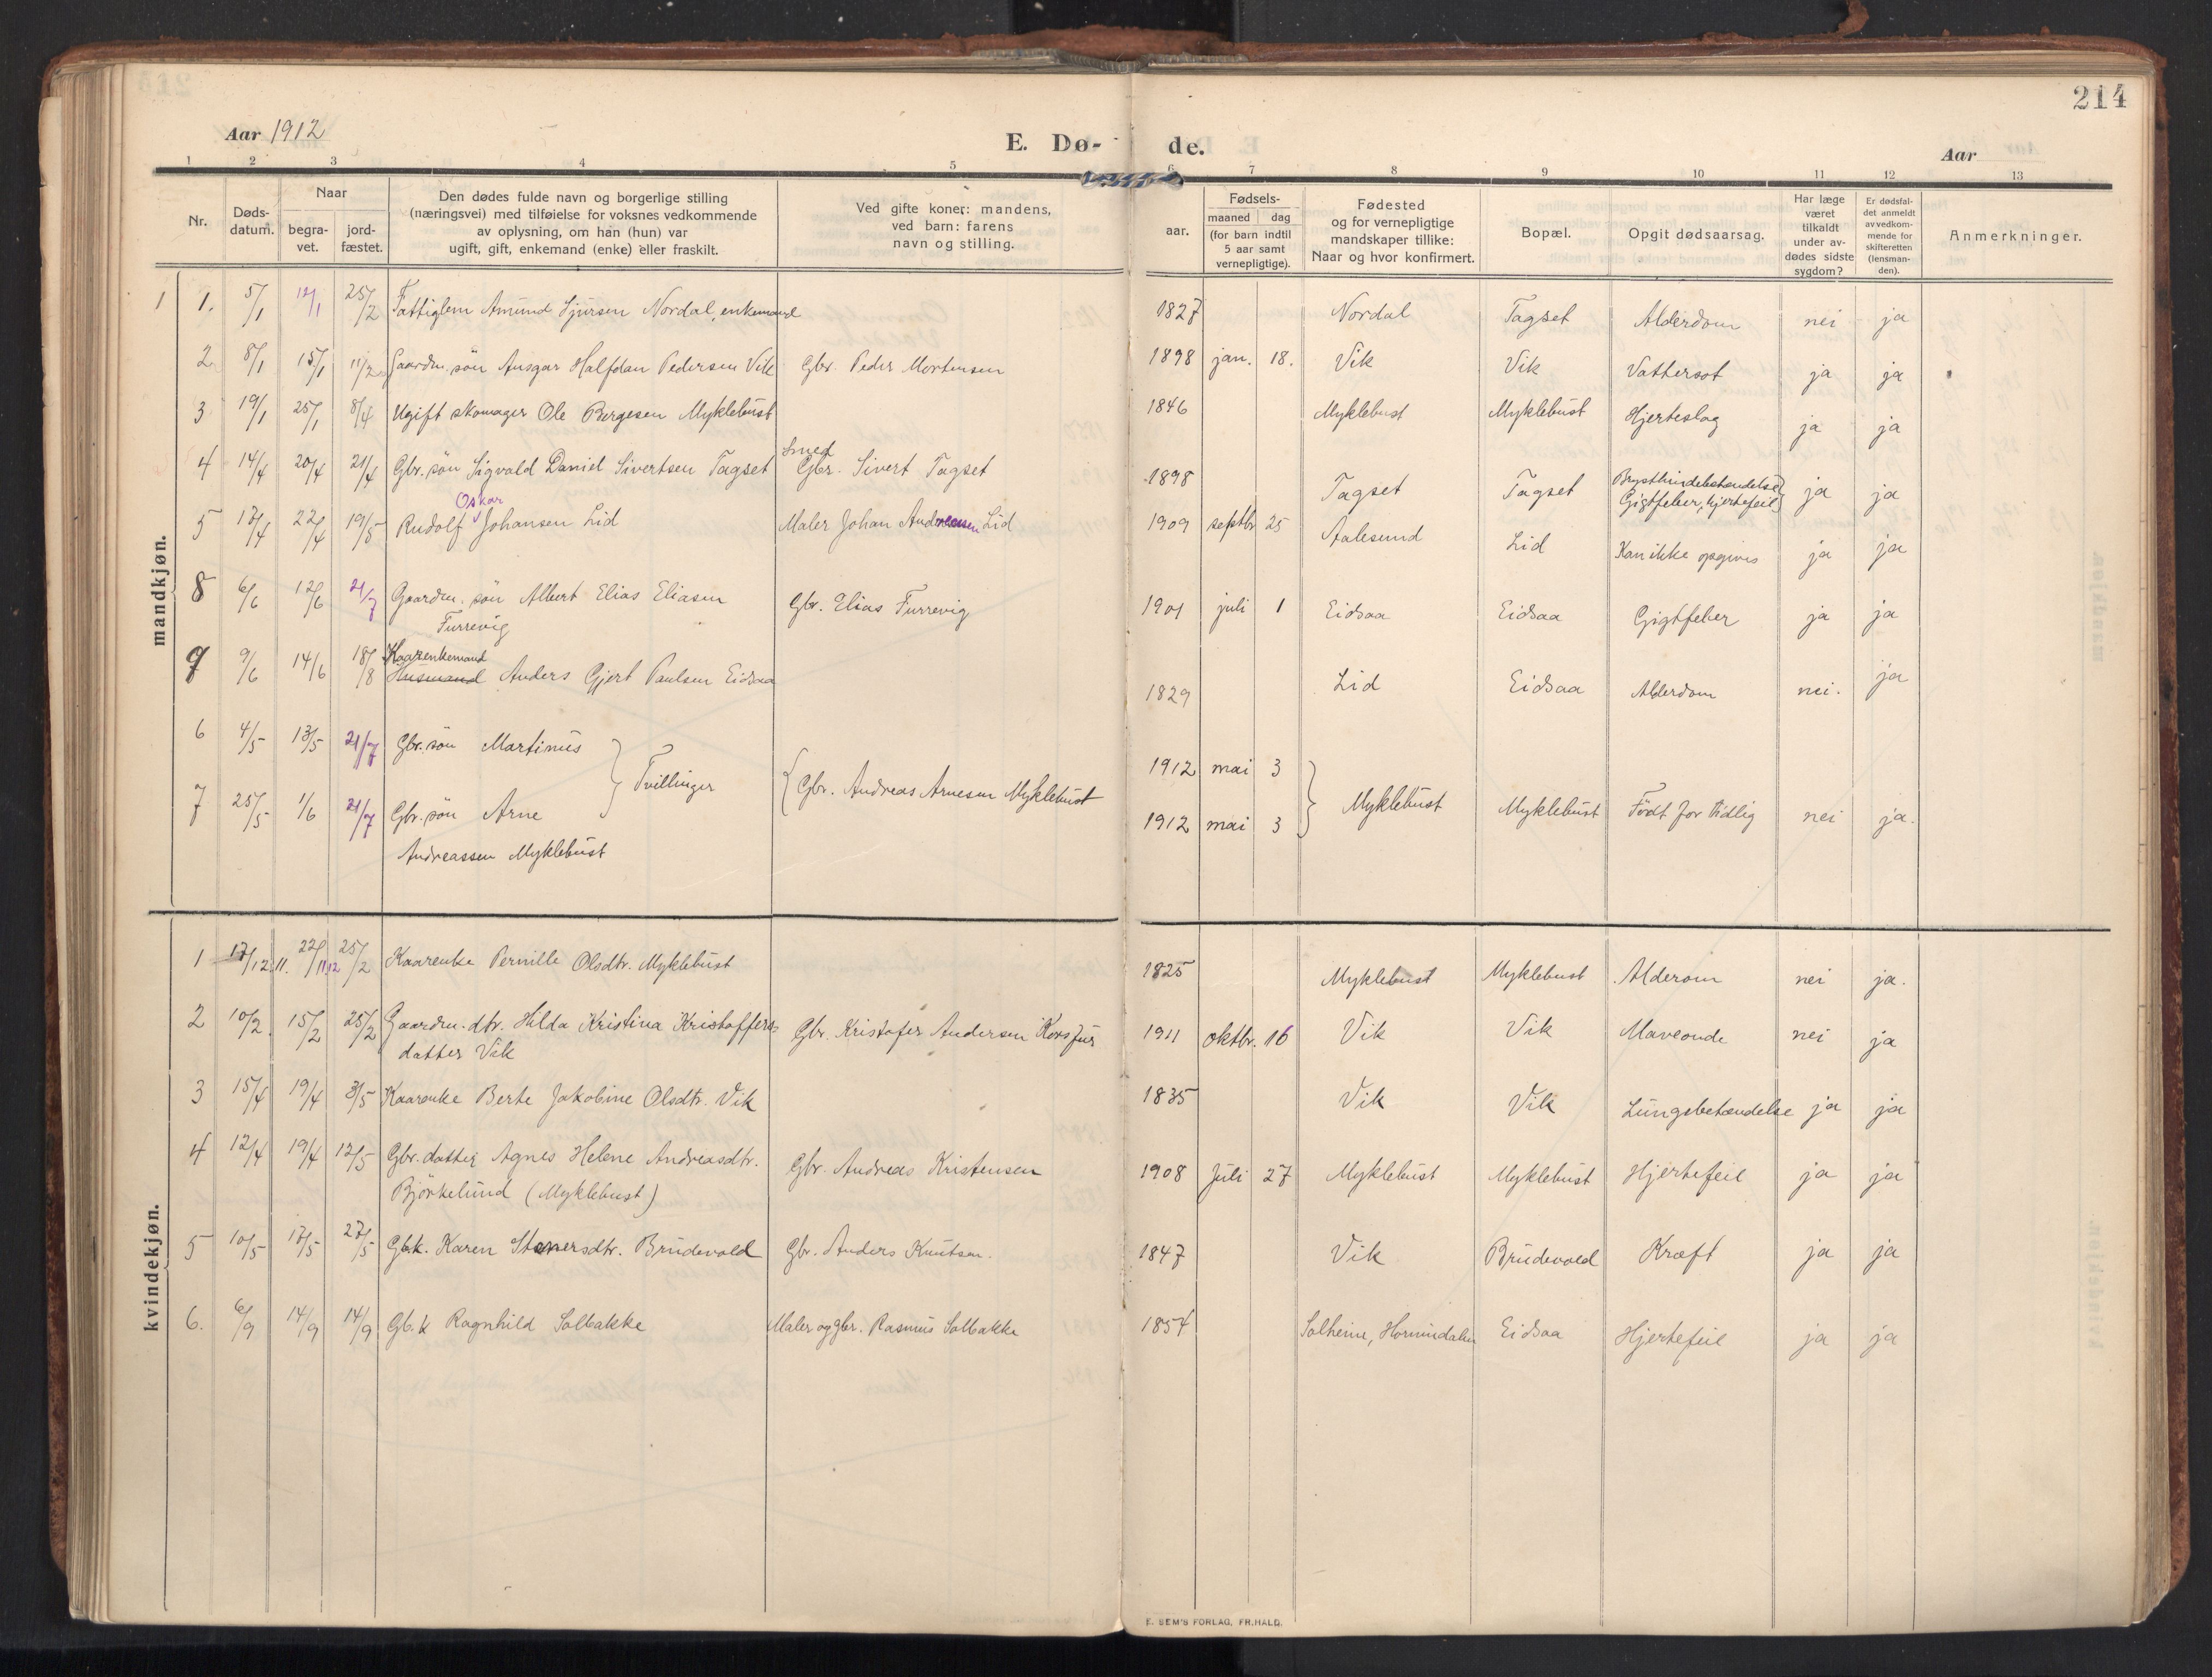 214
Aar 1912
E. Dø- de.
Aar
1 2 3 4 5 6 7 8 9 10 11 12 13
Nr.
Døds-
datum.
Naar
begra-
vet.
jord-
fæstet.
Den dødes fulde navn og borgerlige stilling
(næringsvei) med tilføielse for voksnes vedkommende
av oplysning, om han (hun) var
ugift, gift, enkemand (enke) eller fraskilt.
Ved gifte koner: mandens,
ved barn: farens
navn og stilling.
Fødsels-
aar.
maaned dag
(for barn indtil
5 aar samt
vernepligtige).
Fødested
og for vernepligtige
mandskaper tillike:
Naar og hvor konfirmert.
Bopæl.
Opgit dødsaarsag.
Har læge
været
tilkaldt
under av-
dødes sidste
sygdom?
Er dødsfal-
det anmeldt
av vedkom-
mende for
skifteretten
(lensman-
den).
Anmerkninger.
mandkjøn.
1 1. 5/1 12/1 25/2 Fattiglem Amund Sjursen Nordal, enkemand 1827 Nordal Tagset Alderdom nei ja
2 8/1 15/1 11/2 Gaardm. søn Ansgar Halfdan Pedersen Vik Gbr. Peder Mortensen 1898 jan. 18. Vik Vik Vattersot ja ja
3 19/1 25/1 8/4 Ugift skomager Ole Børgesen Myklebust 1846 Myklebust Myklebust Hjerteslag ja ja
Smed
4 14/4 20/4 21/4 Gbr. søn Sigvald Daniel Sivertsen Tagset Gbr. Sivert Tagset 1898 Tagset Tagset Brysthindebetændelse ja ja
Gigtfeber, hjertefeil
Oskar
5 17/4 22/4 19/5 Rudolf Johansen Lid Maler Johan Andreassen Lid 1909 septbr 25 Aalesund Lid Kan ikke opgives ja ja
8 6/6 12/6 21/7 Gaardm. søn Albert Elias Eliasen Gbr. Elias Furrevig 1901 juli 1 Eidsaa Eidsaa Gigtfeber ja ja
Furrevig
Kaarenkemand
9 9/6 14/6 18/8 Husmand Anders Gjert Paulsen Eidsaa 1829 Lid Eidsaa Alderdom nei. ja
6 4/5 13/5 21/7 Gbr. søn Martinus 1912 mai 3
Tvillinger Gbr. Andreas Arnesen Myklebust Myklebust Myklebust Født for tidlig nei ja.
7 25/5 1/6 21/7 Gbr. søn Arne 1912 mai 3
Andreassen Myklebust
kvindekjøn.
1 17/12.11. 22/11.12 25/2 Kaarenke Pernille Olsdtr. Myklebust 1825 Myklebust Myklebust Alderom nei ja.
2 10/2. 15/2 25/2 Gaardm. dtr. Hilda Kristina Kristoffers- Gbr. Kristofer Andersen Korsfur 1911 oktbr. 16 Vik Vik Maveonde nei ja
datter Vik
3 15/4 19/4 3/5 Kaarenke Berte Jakobine Olsdtr. Vik 1835 Vik Vik Lungsbetændelse ja ja
4 12/4 19/4 12/5 Gbr. datter Agnes Helene Andreasdtr. Gbr. Andreas Kristensen 1908 Juli 27 Myklebust Myklebust Hjertefeil ja ja
Björkelund (Myklebust)
5 10/5 17/5 27/5 Gb.k. Karen Brudevold Gbr. Anders Knutsen. 1847 Vik Brudevold Kræft ja ja
6. 6/9 14/9 14/9 Gb.k Ragnhild Solbakke Maler og gbr. Rasmus Solbakke 1854 Solheim, Hornindalen Eidsaa Hjertefeil ja ja
E. SEM'S FORLAG, FR.HALD.